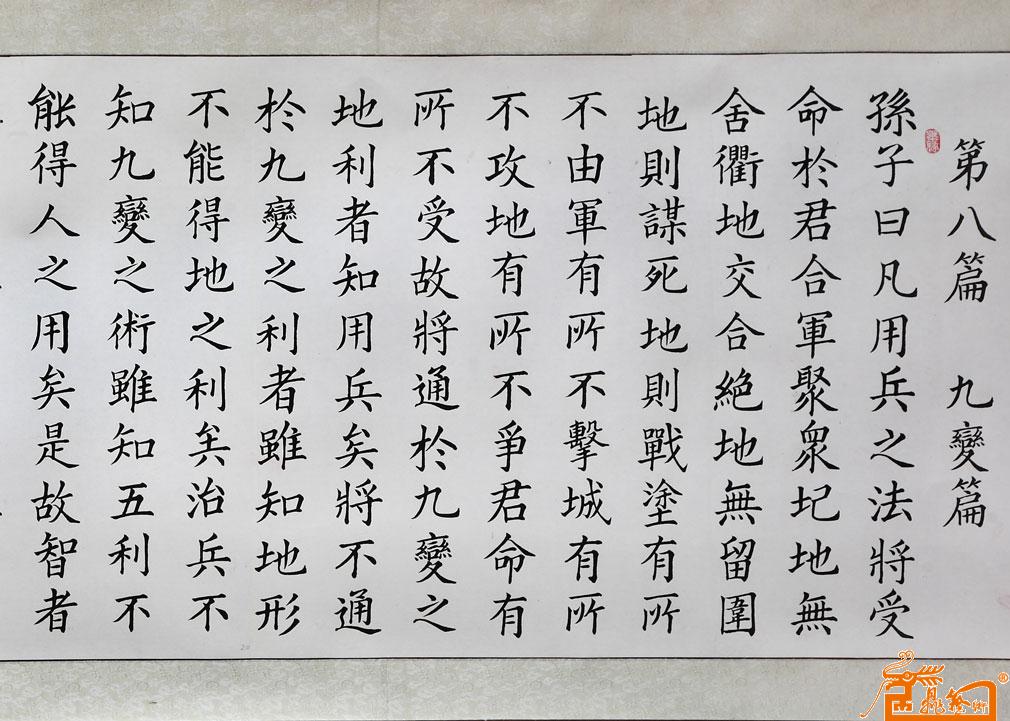 第八篇 九變篇
孫子曰凡用兵之法將受
命於君合軍聚眾圮地無
舍衢地交合絕地無留圍
地則謀死地則戰塗有所
不由軍有所不擊城有所
不攻地有所不爭君命有
所不受故將通於九變之
地利者知用兵矣將不通
於九變之利者雖知地形
不能得地之利矣治兵不
知九變之術雖知五利不
能得人之用矣是故智者